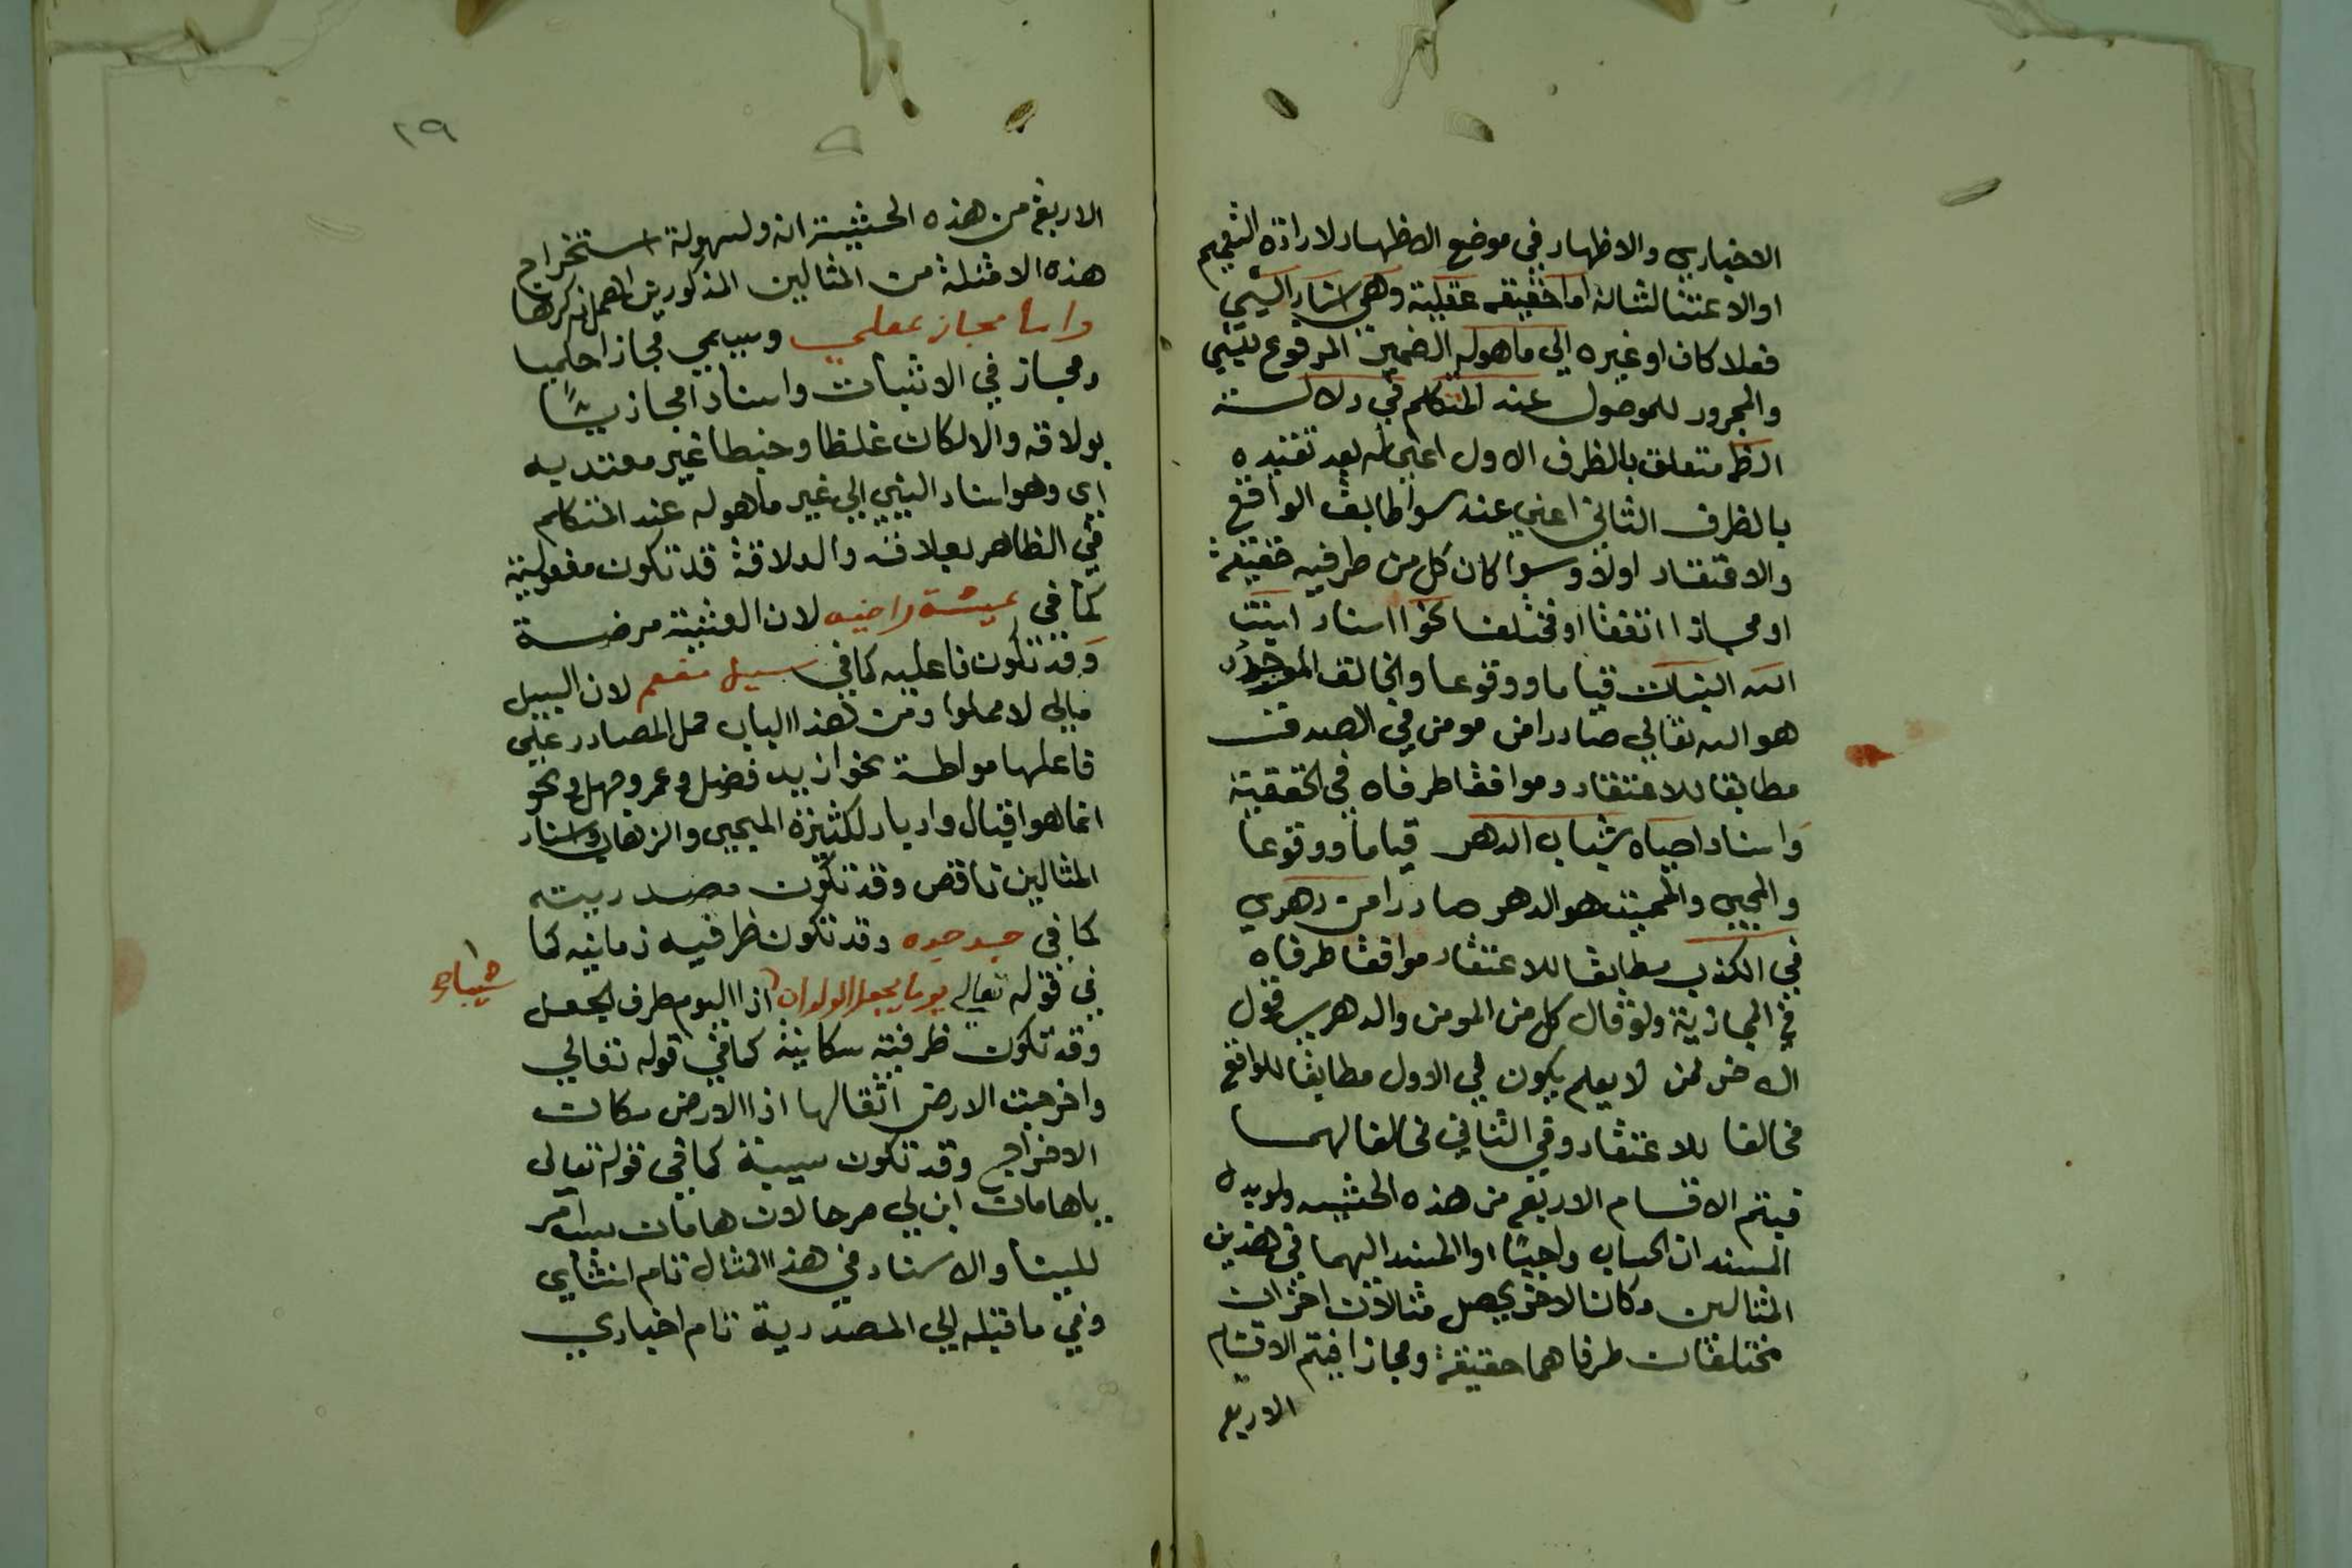 الاخباري والاظهار في موضع الاظهار لارادة التعميم
او الاعتنا لشانه اما حقيقة عقلية وهي اسناد الشيي
فعلا كان او غيره الي ما هو له الضمير المرفوع للشيي
والمجرور للموصول عند المتكلم في دلالة
الظ متعلق بالظرف الاول اعني له بعد تقييده
بالظرف الثاني اعني عند سوا طابق الواقع
والاعتقاد اولا وسوا كان كل من طرفيه حقيقة
او مجازا اتفقا او مختلفا نحو اسناد انبت
الله النبات قياما ووقوعا والخالق الموجد
هو الله تعالي صادرا من مومن في الصدق
مطابقا للاعتقاد وموافقا طرفاه في الحقيقية
واسناد احياه شباب الدهر قياما ووقوعا
والمحيي والمميت هو الدهر صادرا من دهري
في الكذب مطابقا للاعتقاد موافقا طرفاه
في المجازية ولو قال كل من المومن والدهري قول
الاخر لمن لا يعلم يكون في الاول مطابقا للواقع
مخالفا للاعتقاد وفي الثاني مخالفا لهما
فيتم الاقسام الاربع من هذه الحيثيه ولو بدل
المسندان الحساب واجبًا او المسند اليهما في هذين
المثالين مكان الاخر يحصل مثالان اخران
مختلفان طرفاهما حقيقة ومجازا فيتم الاقسام
الاربع
٢٩
الاربع من هذه الحيثية انه ولسهولة استخراج
هذه الامثلة من المثالين المذكورين اهمل ذكرها
واما مجاز عقلي ويسمي مجازا حكميا
ومجاز في الاثبات واسنادا مجازيًا
بولاقه والا لكان غلطا وخبطا غير معتد به
اي وهو اسناد الشيي الي غير ما هو له عند المتكلم
في الظاهر بعلاقه والعلاقة قد تكون مفعولية
كما في عيشة راضيه لان العيشة مرضية
وقد تكون فاعليه كما في سيل مفعم لان السيل
مالي لا مملوا ومن هذا الباب حمل المصادر علي
فاعلها مواطة نحو ازيد فضل وعمرو جهل ونحو
انما هو اقبال وادبار لكثيرة المجيي والزهاب واسناد
المثالين ناقص وقد تكون مصدرية
كما في جد جده وقد تكون ظرفيه زمانيه كما
في قوله تعالي يوما يجعل الولدان اذا اليوم ظرف لجعل
شيبا
وقد تكون ظرفية مكانية كما في قوله تعالي
واخرجت الارض اثقالها اذا الارض مكان
الاخراج وقد تكون سببية كما في قوله تعالى
ياهامان ابن لي صرحا لان هامان سبب امر
للبينا والاسناد في هذا المثال تام انشاي
وفي ما قبله الي المصدرية تام اخباري